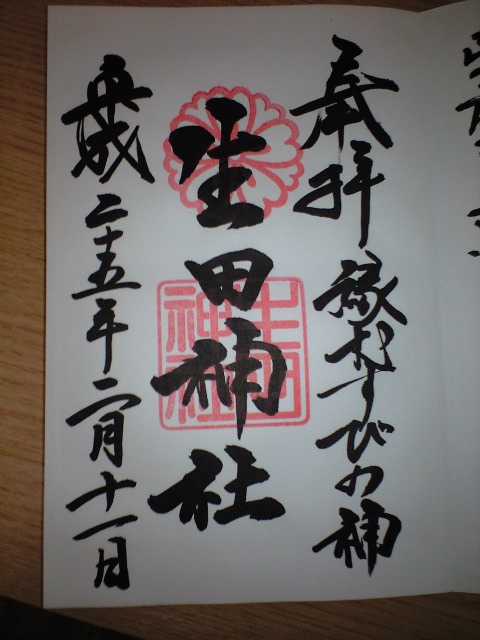 奉拝 縁むすびの神
生田神社
生田神社
平成二十五年二月十一日